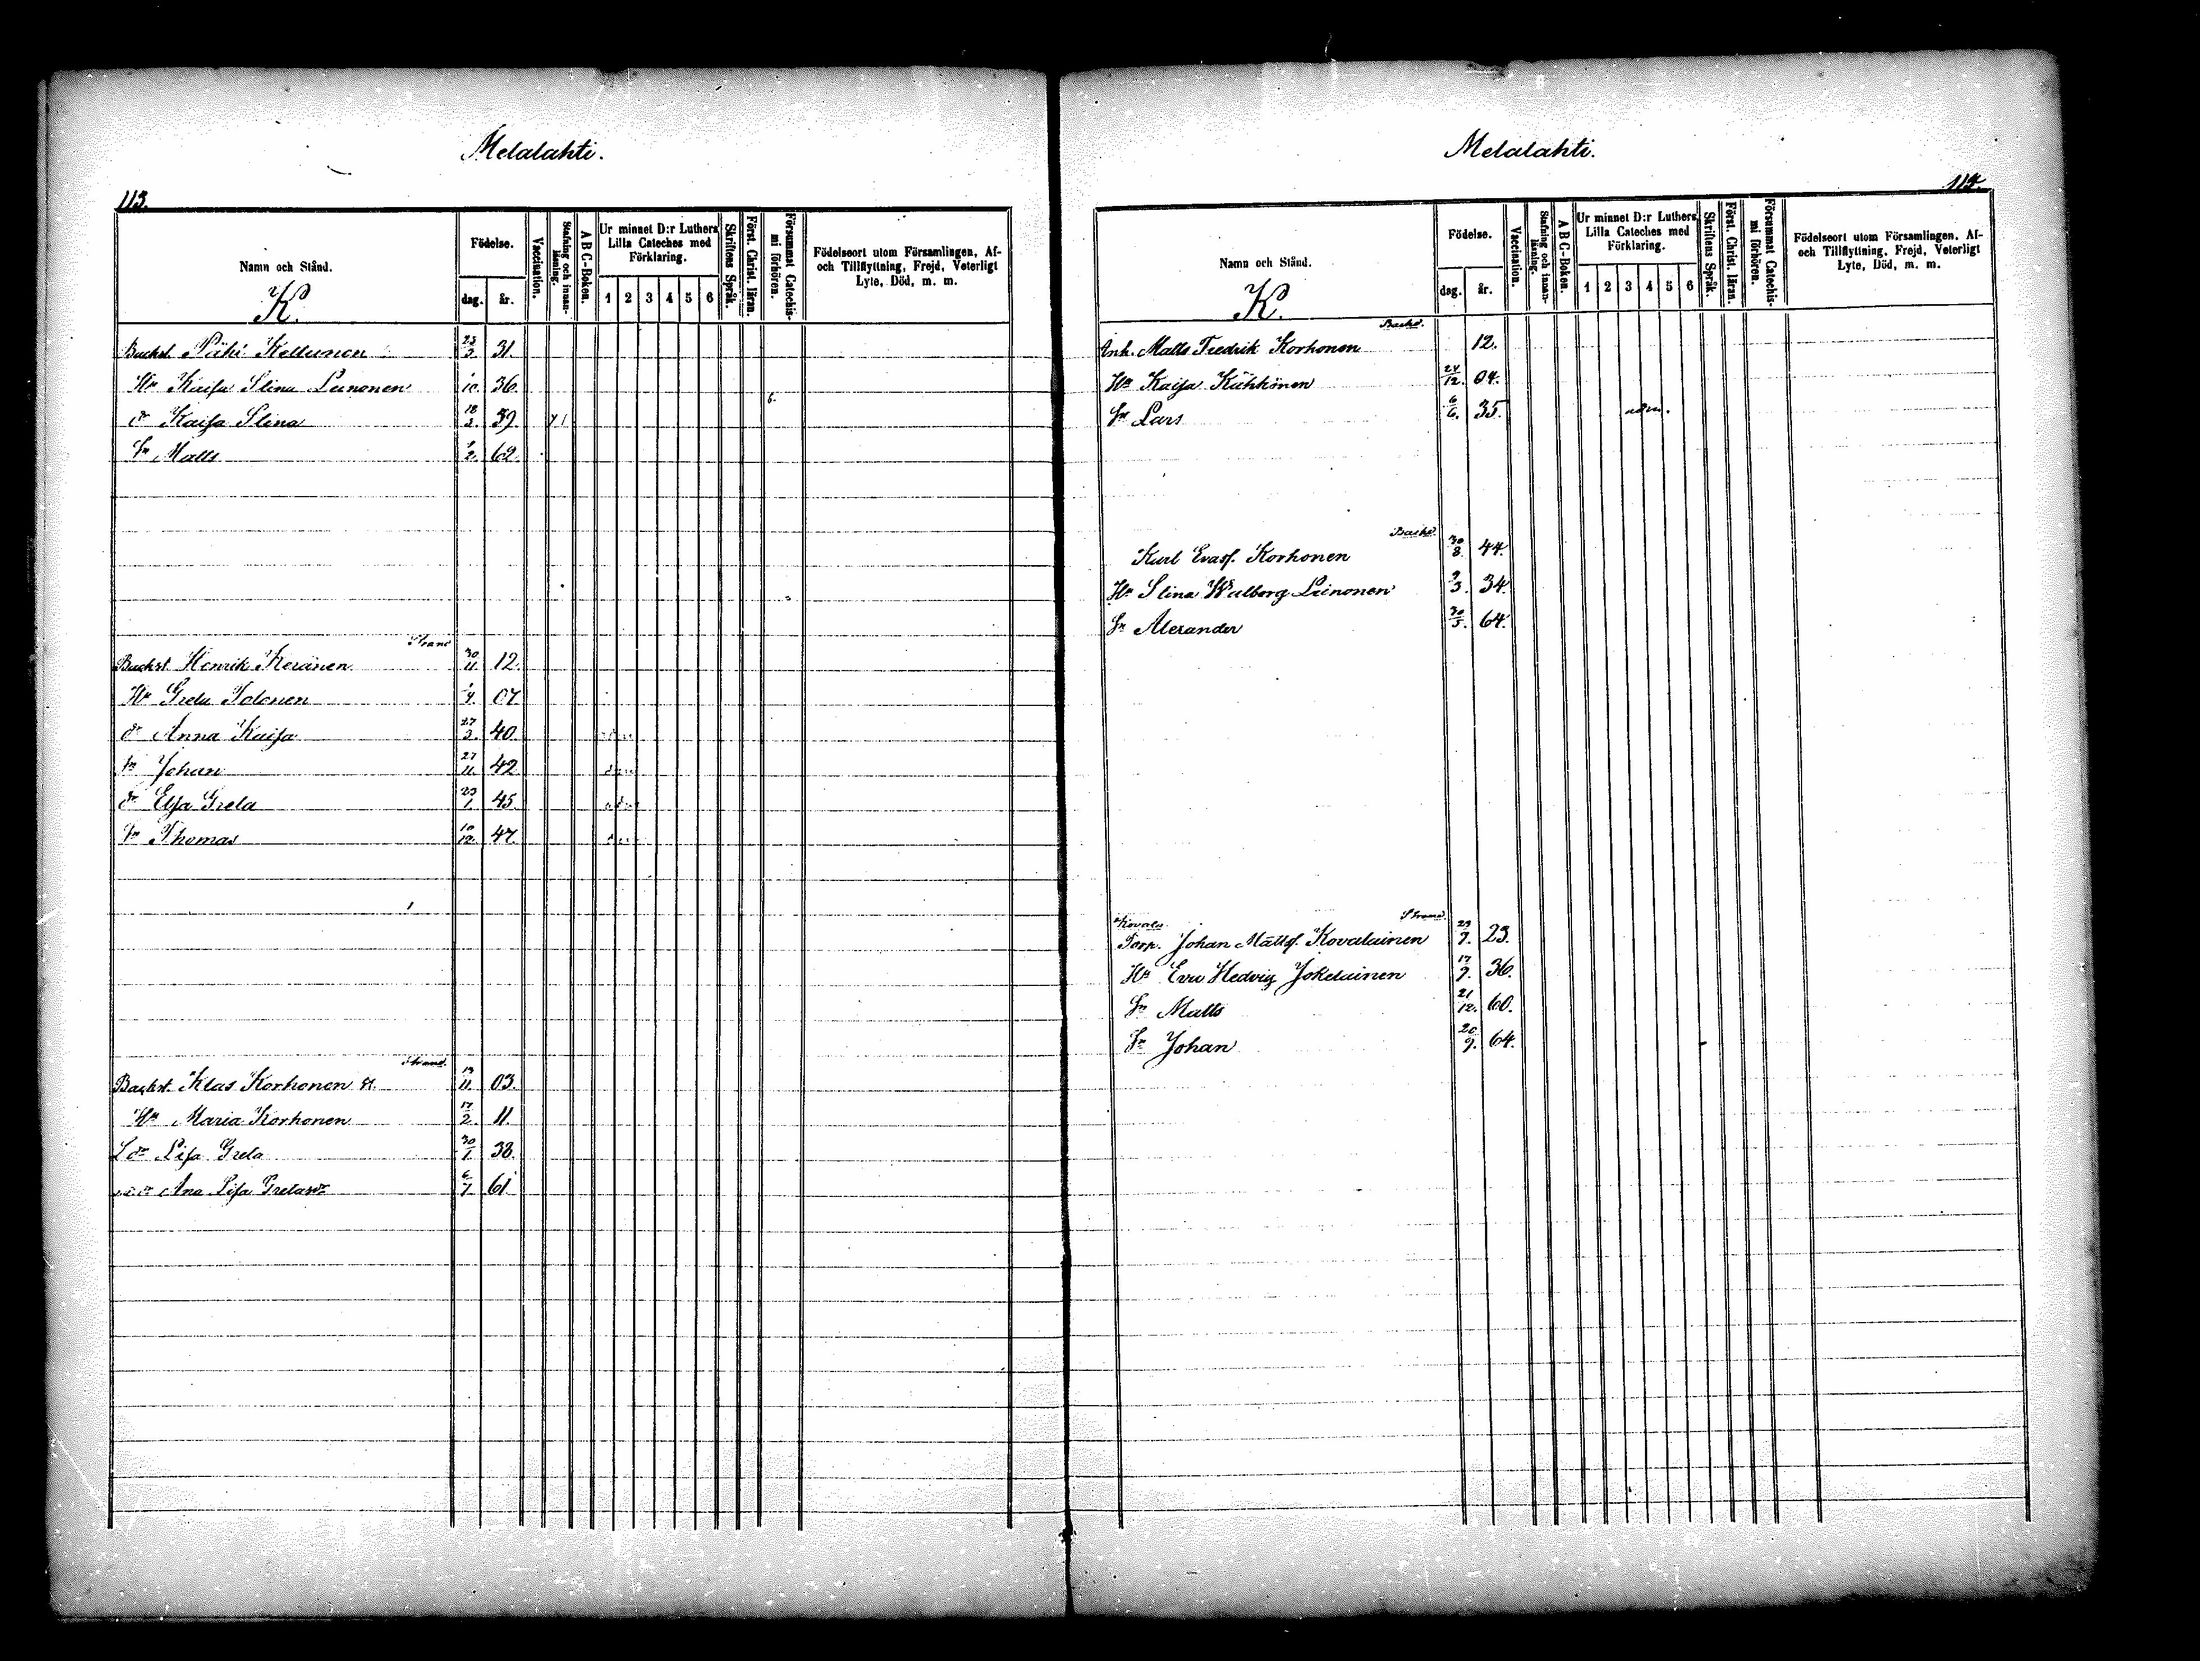 Melalahti.
113.
Namn och Stånd.
K.
Födelse.
dag. år.
Vaccination.
Stafning och innanläsning.
A B C-Boken.
Ur minnet D:r Luthers Lilla Cateches med Förklaring.
1 2 3 4 5 6
Skriftens Språk.
Först. Christ. läran.
Försummat Catechismi förhören.
Födelseort utom Församlingen, Af- och Tillflyttning, Frejd, Veterligt Lyte, Död, m. m.
Backst. Påhi Kellunen 23/3. 31.
Hu Kaisa Stina Leinonen 1/10. 36.
dr Kaisa Stina 18/3. 59.
Sn Matts 1/2. 62.
Strand
Backst. Henrik Keränen 30/11. 12.
Hu Greta Tolonen 1/4. 07
dr Anna Kaisa 27/3. 40.
Sn Johan 27/11. 42
dr Elsa Greta 23/1. 45.
Sn Thomas 10/12. 47.
Strand.
Backst. Klas Korhonen 13/11. 03.
Hu Maria Korhonen 17/2. 11.
dr Lisa Greta 30/1. 38.
dr Ana Lisa Gretasdr 6/7. 61.
Melalahti.
114.
Namn och Stånd.
K.
Födelse.
dag. år.
Vaccination.
Stafning och innanläsning.
A B C-Boken.
Ur minnet D:r Luthers Lilla Cateches med Förklaring.
1 2 3 4 5 6
Skriftens Språk.
Först. Christ. läran.
Försummat Catechismi förhören.
Födelseort utom Församlingen, Af- och Tillflyttning, Frejd, Veterligt Lyte, Död, m. m.
Backst.
Enk. Matts Fredrik Korhonen 12.
Hu Kaisa Kähkönen 24/12. 04.
Sn Lars 6/6. 35. adm.
Backst.
Karl Evasf. Korhonen 30/8. 44.
Hu Stina Walborg Leinonen 9/3. 34.
Sn Alexander 30/5. 64.
Kovala Strand.
Torp. Johan Mattsf. Kovalainen 29/7. 23.
Hu Eva Hedvig Jokelainen 17/7. 36.
Sn Matts 21/12. 60.
Sn Johan 20/9. 64.